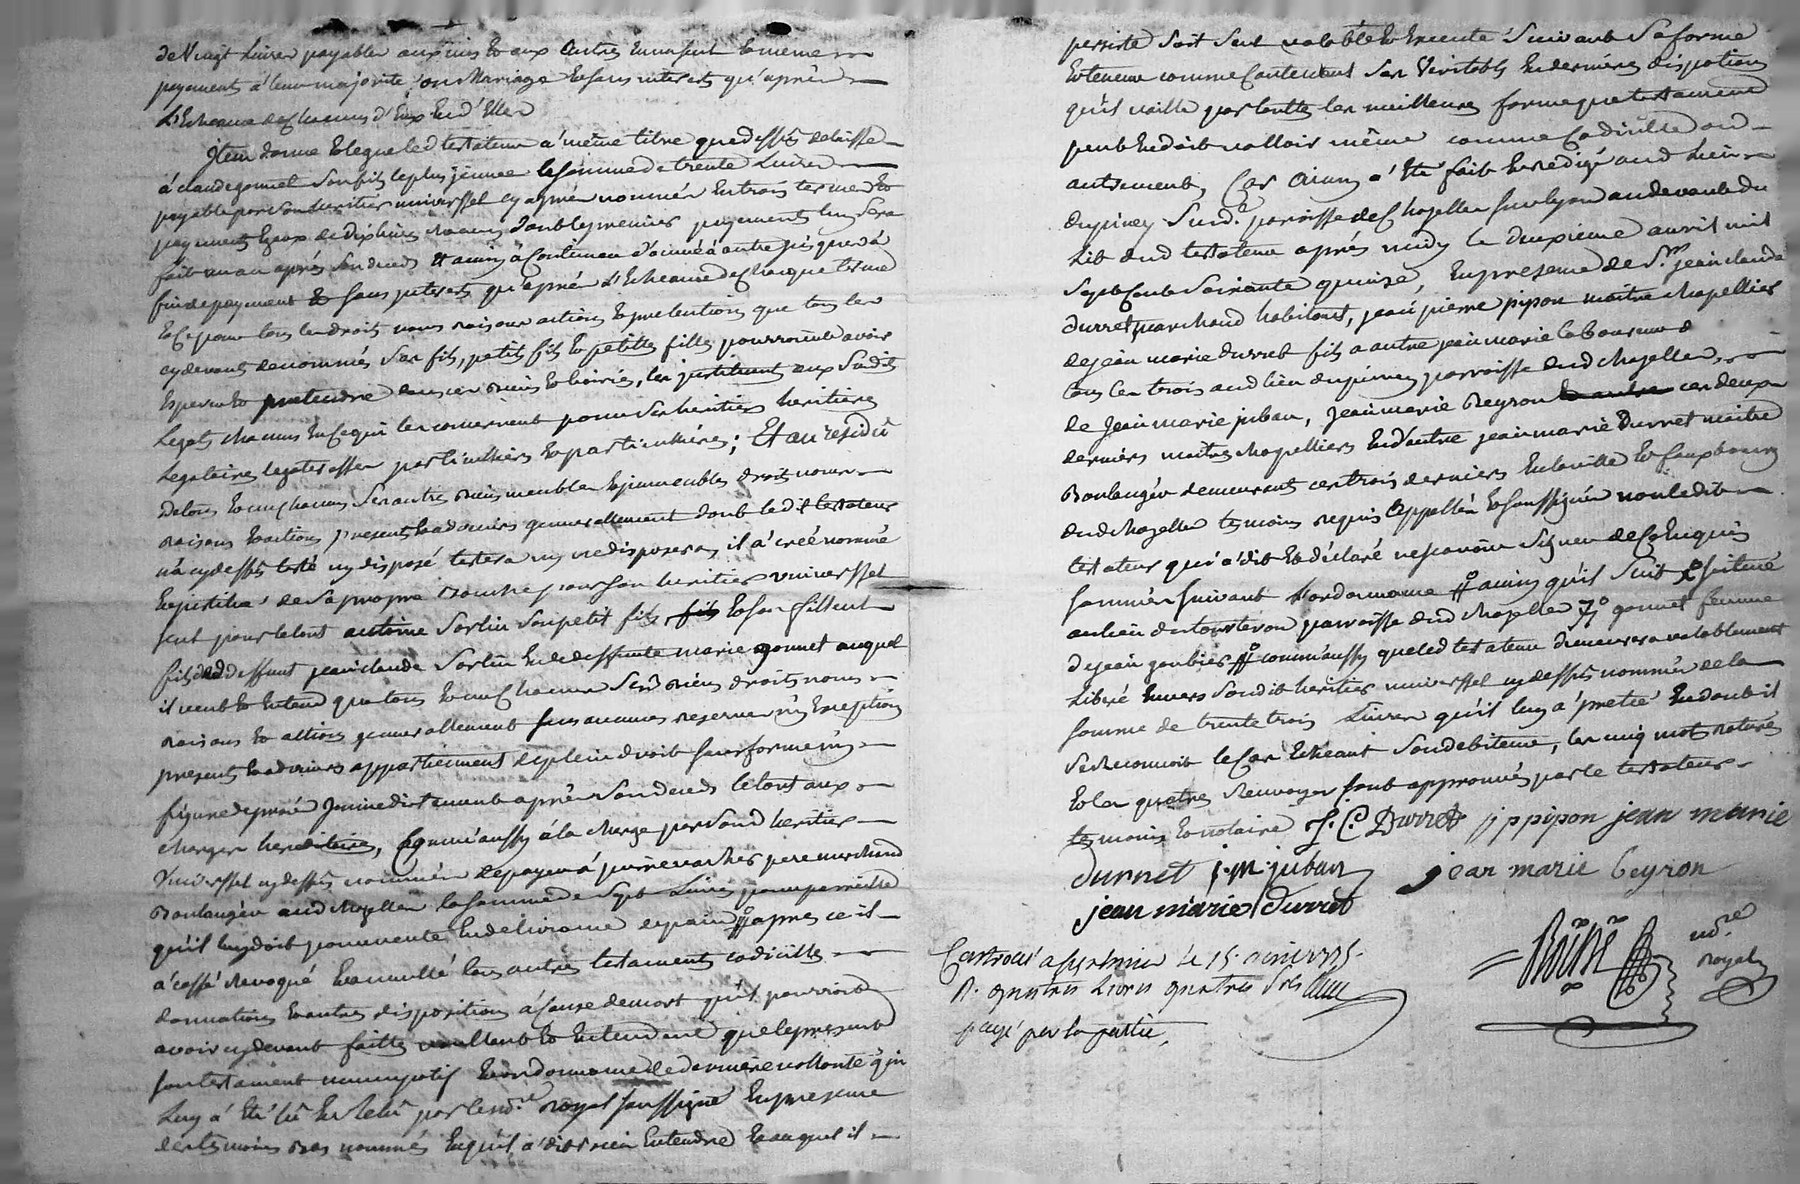 de vingt Livres payable aux uns & aux autres en un seul & meme
payements a leur majorité ou Mariage & sans interets qu'après
L'Echeance de chacuns d'Eux & d'Elles
Item donne & legue led testateur a même titre que dessus delaisse
à claude gonnet son fils le plus jeunne la somme de trente Livres
payable par son heritier universsel cy après nommé en trois termes &
payements egaux de dix livres chacuns dont le premier payement luy sera
fait un an après son deceds & ainsy à Continuer d'année à autre jusques à
fin de payement & sans interets qu'après L'Echeance de chaque terme
& ce pour tous les droits noms raisons actions & pretentions que tous les
cy devants denommés ses fils, petits fils & petittes filles pourroient avoir
esperer & pretendre dans ses biens & hoiries, les jnstituant aux susdits
Legats chacuns en ce qui les concernent pour ses heritiers heritieres
Legataires particulliers & particullieres; Et au residû
De tous & uns chacuns ses autres biens meubles & jmmeubles droits noms
raisons & actions presents & advenirs generallement dont led testateur
n'a cy dessus testé ny disposé testera ny ne disposera, il a créé nommé
& jnstitué de sa propre bouche pour son heritier universsel
seul pour le tout antoine Sorlin son petit fils & son filleul
fils de deffunt jean claude Sorlin & de deffunte marie gonnet auquel
il veut & entend que tous & uns chacuns ses d. biens droits noms
raisons & actions generallement sans aucunes reserves ny Exception
presents & advenirs appartiennent de plein droit sans forme ny
figure de procé jmmediatement après son deceds le tout aux
charges hereditaires, Comm'aussy à la charge par sond heritier
Universsel cy dessus nommé de payer à pere marchand
Boulanger aud chazelles la somme de Sept Livres pour pareille
qu'il luy doit pour vente & delivrance de pain après ce il
a cassé revoqué & annullé tous autres testaments codicilles
donnations & autres disposition à Cause de mort qu'il pourroit
avoir cy devant faittes voullant & entendant que le present
son testament nuncupatif & ordonnance de derniere vollonté qui
Luy a été lû & relû par led no.re royal soussigné En presence
des temoins bas nommés & qu'il a dit bien Entendre & auquel il
persiste soit seul valable & Executé Suivant Sa forme
& teneur comme Contenant ses Veritables & dernieres dispotions
qu'il vaille par toutte les meilleures forme que testament
peut & doit valloir même comme Codicille ou
autrement, Car Ainsy a été fait & redigé aud Lieu
du piney Susd. parroisse de Chazelles sur lyon au devant du
Lit dud testateur après midy le deuxieme avril mil
Sept Cents Soixante quinze, En presence de S.r jean claude
Durret marchand habitant, jean pierre pipon maitre chapellier
de jean marie durret fils a autre jean marie laboureur
tous les trois aud lieu du piney parroisse dud chazelles,
de Jean marie juban, Jean marie Beyron ces deux
derniers maitres chapelliers & d'autre jean marie Durret maitre
Boulanger demeurants ces trois derniers En la ville & fauxbourg
dud chazelles temoins requis Appellés & soussignés non led
testateur qui a dit & déclaré ne sçavoir Signer de ce Enquis
sommé suivant l'ordonnance ainsy qu'il Suit située
au lieu de parroisse dud chazelles gonnet femme
de jean gonbier comm'aussy que led testateur demeurera valablement
Libéré Envers sondit heritier universsel cy dessus nommé de la
somme de trente trois Livres qu'il luy a preté & dont il
se reconnoit le Cas Echeant Son debiteur, les cinq mot raturés
& les quatres renvoyes sont approuvés par le testateur
temoins & notaire J. C. Durret jppipon jean marie
durret j. m. juban jean marie Beyron
jean marie Durret
Controllé a le 15. avril 1775.
R. quatres Livres quatres Sols
payé par la partie
no.re
royal